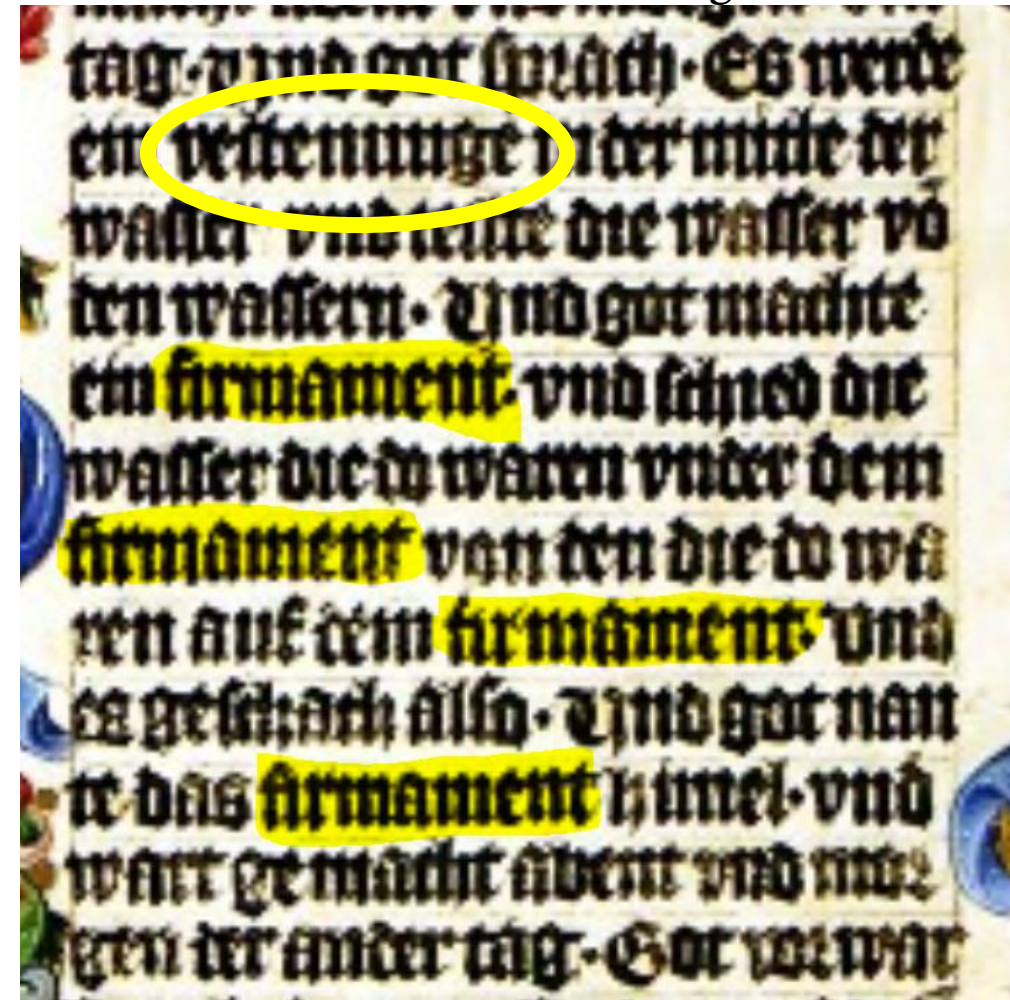 tag · vnd got sprach · Es werde
ein vestenunge in der mitte der
wasser vnd teilte die wasser vō
den wassern · Vnd got machte
ein firmament · vnd schied die
wasser die do waren vnder dem
firmament von den die do wa
ren auf dem firmament · vnd
es geschach also · Vnd got nan
te das firmament himel · vnd
wart gemacht abent vnd mor
gen der ander tag · Got